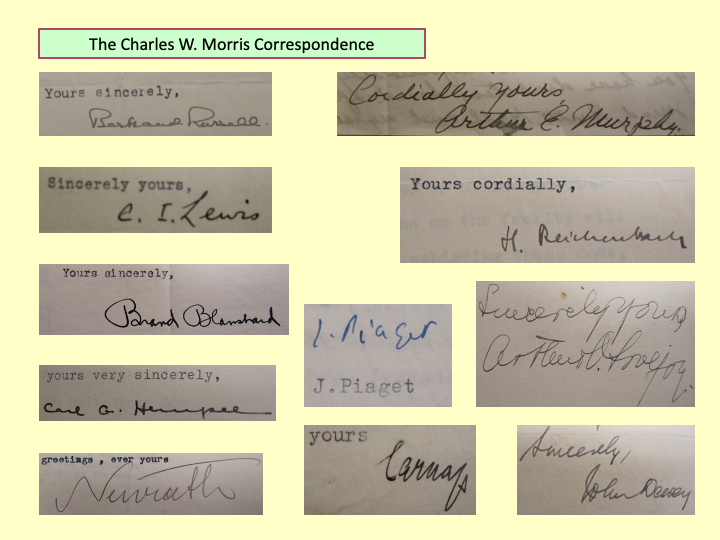 The Charles W. Morris Correspondence
Yours sincerely,
Bertrand Russell.
Cordially yours,
Arthur E. Murphy.
Sincerely yours,
C. I. Lewis
Yours cordially,
H. Reichenbach
Yours sincerely,
Brand Blanshard
J. Piaget
J.Piaget
Sincerely yours,
Arthur O. Lovejoy.
yours very sincerely,
Carl G. Hempel
greetings , ever yours
Neurath
yours
Carnap
Sincerely,
John Dewey